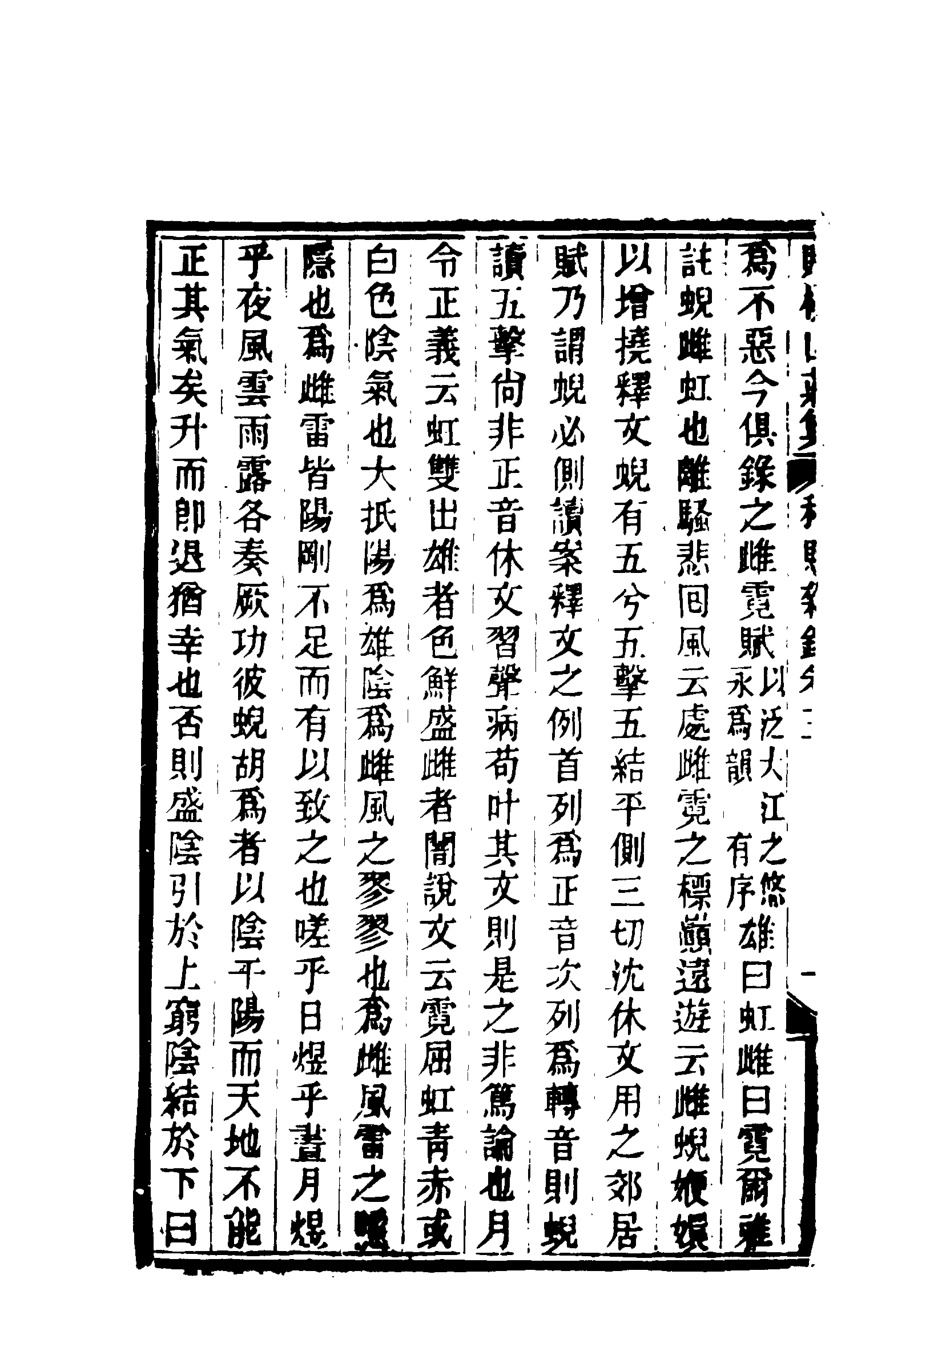 爲不惡今俱錄之雌霓賦以泛大江之悠永爲韻有序雄曰虹雌曰霓爾雅
註蜺雌虹也離騷悲回風云處雌霓之標巔遠遊云雌蜺㛹嬛
以增撓釋文蜺有五兮五擊五結平側三切沈休文用之郊居
賦乃謂蜺必側讀案釋文之例首列爲正音次列爲轉音則蜺
讀五擊尙非正音休文習聲病苟叶其文則是之非篤論也月
令正義云虹雙出雄者色鮮盛雌者闇說文云霓屈虹青赤或
白色陰氣也大抵陽爲雄陰爲雌風之翏翏也爲雌風雷之隱
隱也爲雌雷皆陽剛不足而有以致之也嗟乎日煜乎晝月煜
乎夜風雲雨露各奏厥功彼蜺胡爲者以陰干陽而天地不能
正其氣矣升而卽退猶幸也否則盛陰引於上窮陰結於下曰